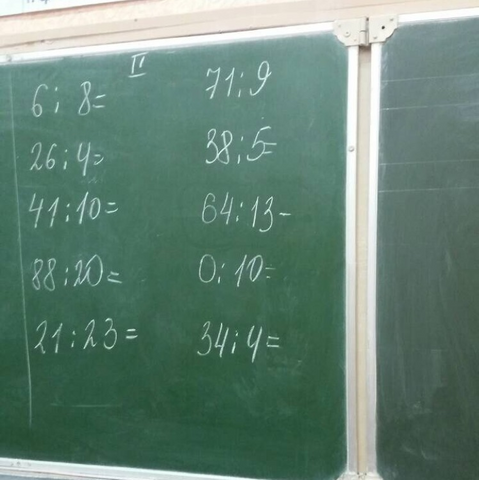 II
6 : 8 =
26 : 4 =
41 : 10 =
88 : 20 =
21 : 23 =
71 : 9
38 : 5 =
64 : 13 -
0 : 10 =
34 : 4 =